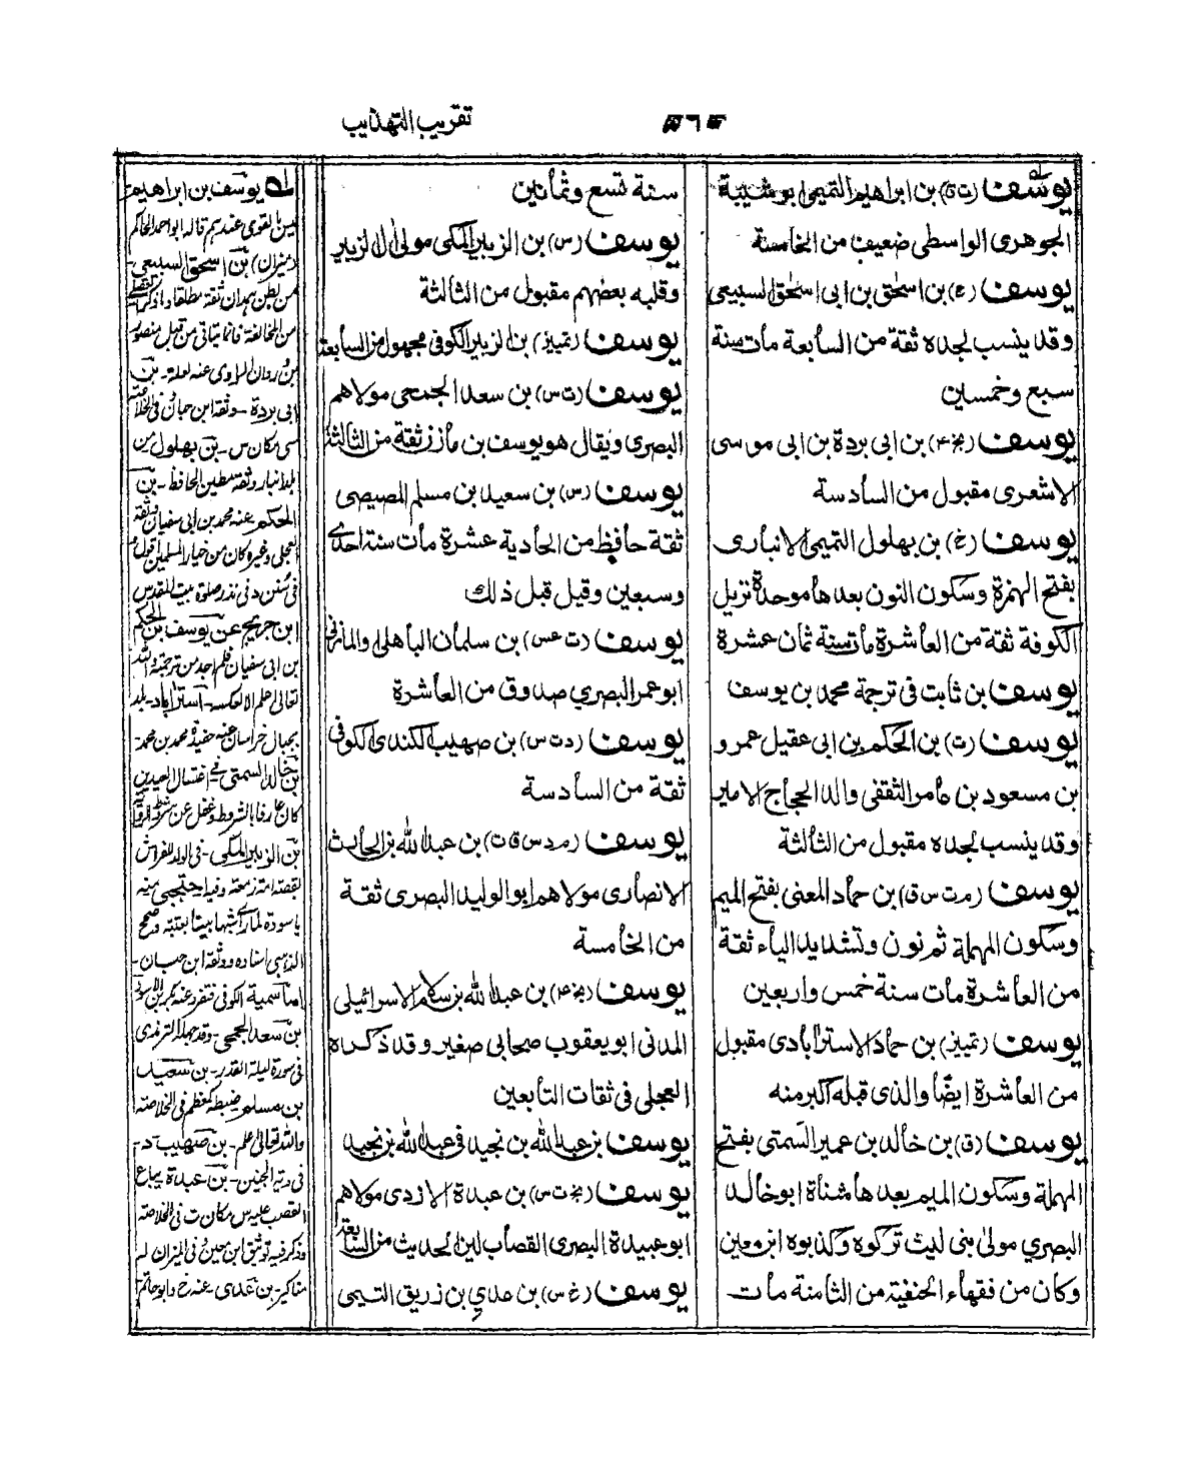 تقريب التهذيب
يوسف (ت ق) بن ابراهيم التميمي ابو شيبة
الجوهرى الواسطى ضعيف من الخامسة
يوسف (ع) بن اسحق بن ابى اسحق السبيعى
وقد ينسب لجده ثقة من السابعة مات سنة
سبع وخمسين
يوسف (بخ ٤) بن ابى بردة بن ابى موسى
الاشعرى مقبول من السادسة
يوسف (خ) بن بهلول التميمى الانبارى
بفتح الهمزة وسكون النون بعدها موحدة نزيل
الكوفة ثقة من العاشرة مات سنة ثمان عشرة
يوسف بن ثابت فى ترجمة محمد بن يوسف
يوسف (ت) بن الحكم بن ابى عقيل عمرو
بن مسعود بن عامر الثقفى والد الحجاج الامير
وقد ينسب لجده مقبول من الثالثة
يوسف (م ت س ق) بن حماد المعنى بفتح الميم
وسكون المهملة ثم نون وتشديد الياء ثقة
من العاشرة مات سنة خمس واربعين
يوسف (تمييز) بن حماد الاسترابادى مقبول
من العاشرة ايضًا والذى قبله اكبر منه
يوسف (ق) بن خالد بن عمير السمتى بفتح
المهملة وسكون الميم بعدها مثناة ابو خالد
البصري مولى بنى ليث تركوه وكذبوه ابن معين
وكان من فقهاء الحنفية من الثامنة مات
سنة تسع وثمانين
يوسف (س) بن الزبير المكى مولى ال الزبير
وقلبه بعضهم مقبول من الثالثة
يوسف (تمييز) بن الزبير الكوفى مجهول من السابعة
يوسف (ت س) بن سعد الجمحى مولاهم
البصرى ويقال هو يوسف بن مازن ثقة من الثالثة
يوسف (س) بن سعيد بن مسلم المصيصى
ثقة حافظ من الحادية عشرة مات سنة احدى
وسبعين وقيل قبل ذلك
يوسف (ت عس) بن سلمان الباهلى والمازنى
ابو عمر البصري صدوق من العاشرة
يوسف (د ت س) بن صهيب الكندى الكوفى
ثقة من السادسة
يوسف (م د س ق ت) بن عبد الله بن الحارث
الانصارى مولاهم ابو الوليد البصرى ثقة
من الخامسة
يوسف (بخ ٤) بن عبد الله بن سلام الاسرائيلى
المدنى ابو يعقوب صحابى صغير وقد ذكره
العجلى فى ثقات التابعين
يوسف بن عبد الله بن نجيد فى عبد الله بن نجيد
يوسف (بخ ت س) بن عبدة الازدى مولاهم
ابو عبيدة البصرى القصاب لين الحديث من السابعة
يوسف (خ س) بن عدي بن زريق التيمى
له يوسف بن ابراهيم
ليس بالقوى عندهم قاله ابو احمد الحاكم
(ميزان) بن اسحق السبيعى
من بطن همدان ثقة مطلقا
من المخالفة فانما تياتى من قبل منصور
بن وردان الراوى عنه لعله - بن
ابى بردة - وثقه ابن حبان فى الخلاصة
س - بن بهلول من
الانبار وثقه مطين الحافظ - بن
الحكم عنه محمد بن ابى سفيان ثقة
العجلى وغيره كان من خيار المسلمين اقول
فى سنن د فى نذر صلوة بيت المقدس
ابن جريج عن يوسف بن الحكم
بن ابى سفيان فلم اجد من ترجمته والله
تعالى اعلم - استراباد - بلد
بجبال خراسان عنه حفيده محمد بن محمد -
بن خالد السمتى فى اغتسال العيدين
كان عارفا بالشروط وغفل عن
بن الزبير المكى - فى الولد للفراش
بقصة امة زمعة وفيه احتجبى منه
يا سودة لما راى شبها بينا بعتبة وصحح
الذهبى اسناده ووثقه ابن حبان -
اما سميه الكوفى فتفرد عنه
بن سعد الجمحى - وقد جهله الترمذى
فى سورة ليلة القدر - بن سعيد
بن مسلم ضبطه كمعظم فى الخلاصة
والله تعالى اعلم - بن صهيب - د -
فى دية الجنين - بن عبدة بياع
القصب عليه س مكان ت فى الخلاصة
وذكر فيه توثيق ابن معين وفى الميزان له
مناكير - بن عدى - عنه خ وابو حاتم